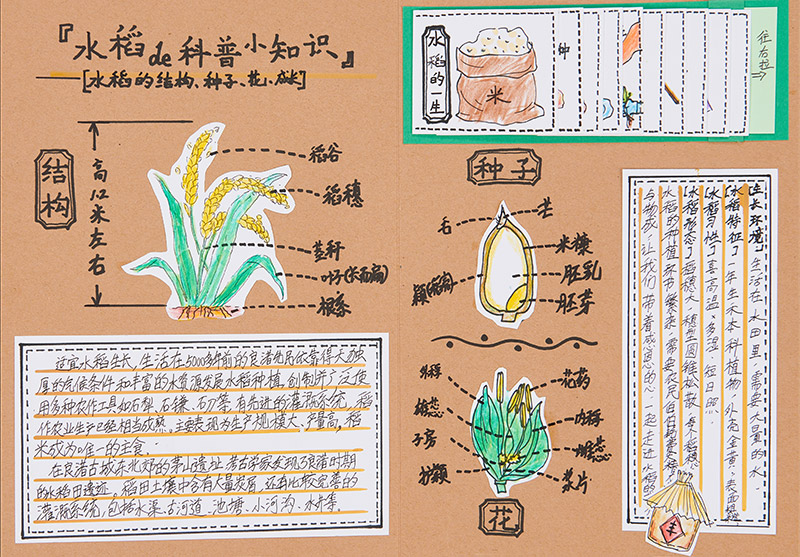 『水稻de科普小知识』
[水稻的结构、种子、花、成长]
结构
高1.2米左右
稻谷
稻穗
茎秆
叶子(长而扁)
根系
适宜水稻生长,生活在5000多年前的良渚先民依靠得天独
厚的气候条件和丰富的水资源发展水稻种植,创制并广泛使
用多种农作工具如石犁、石镰、石刀等,有先进的灌溉系统,稻
作农业生产已经相当成熟,主要表现为生产规模大、产量高,稻
米成为唯一的主食.
在良渚古城东北郊的茅山遗址,考古学家发现了良渚时期
的水稻田遗迹,稻田土壤中含有大量炭屑,还有比较完善的
灌溉系统,包括水渠、古河道、池塘、小河沟、水井等.
水稻的一生
米
种
往右拉
种子
毛
芒
米糠
胚乳
胚芽
花药
内稃
外稃
子房
护颖
浆片
花
[生长环境]生活在水田里,需要大量的水.
[水稻特征]一年生禾本科植物,外壳金黄,表面
[水稻习性]喜高温、多湿、短日照.
[水稻形态]稻穗大,穗型圆锥松散
水稻的种植环节繁杂,需要农民伯伯的
与物成,让我们带着感恩的心,一起走进水稻的
丰